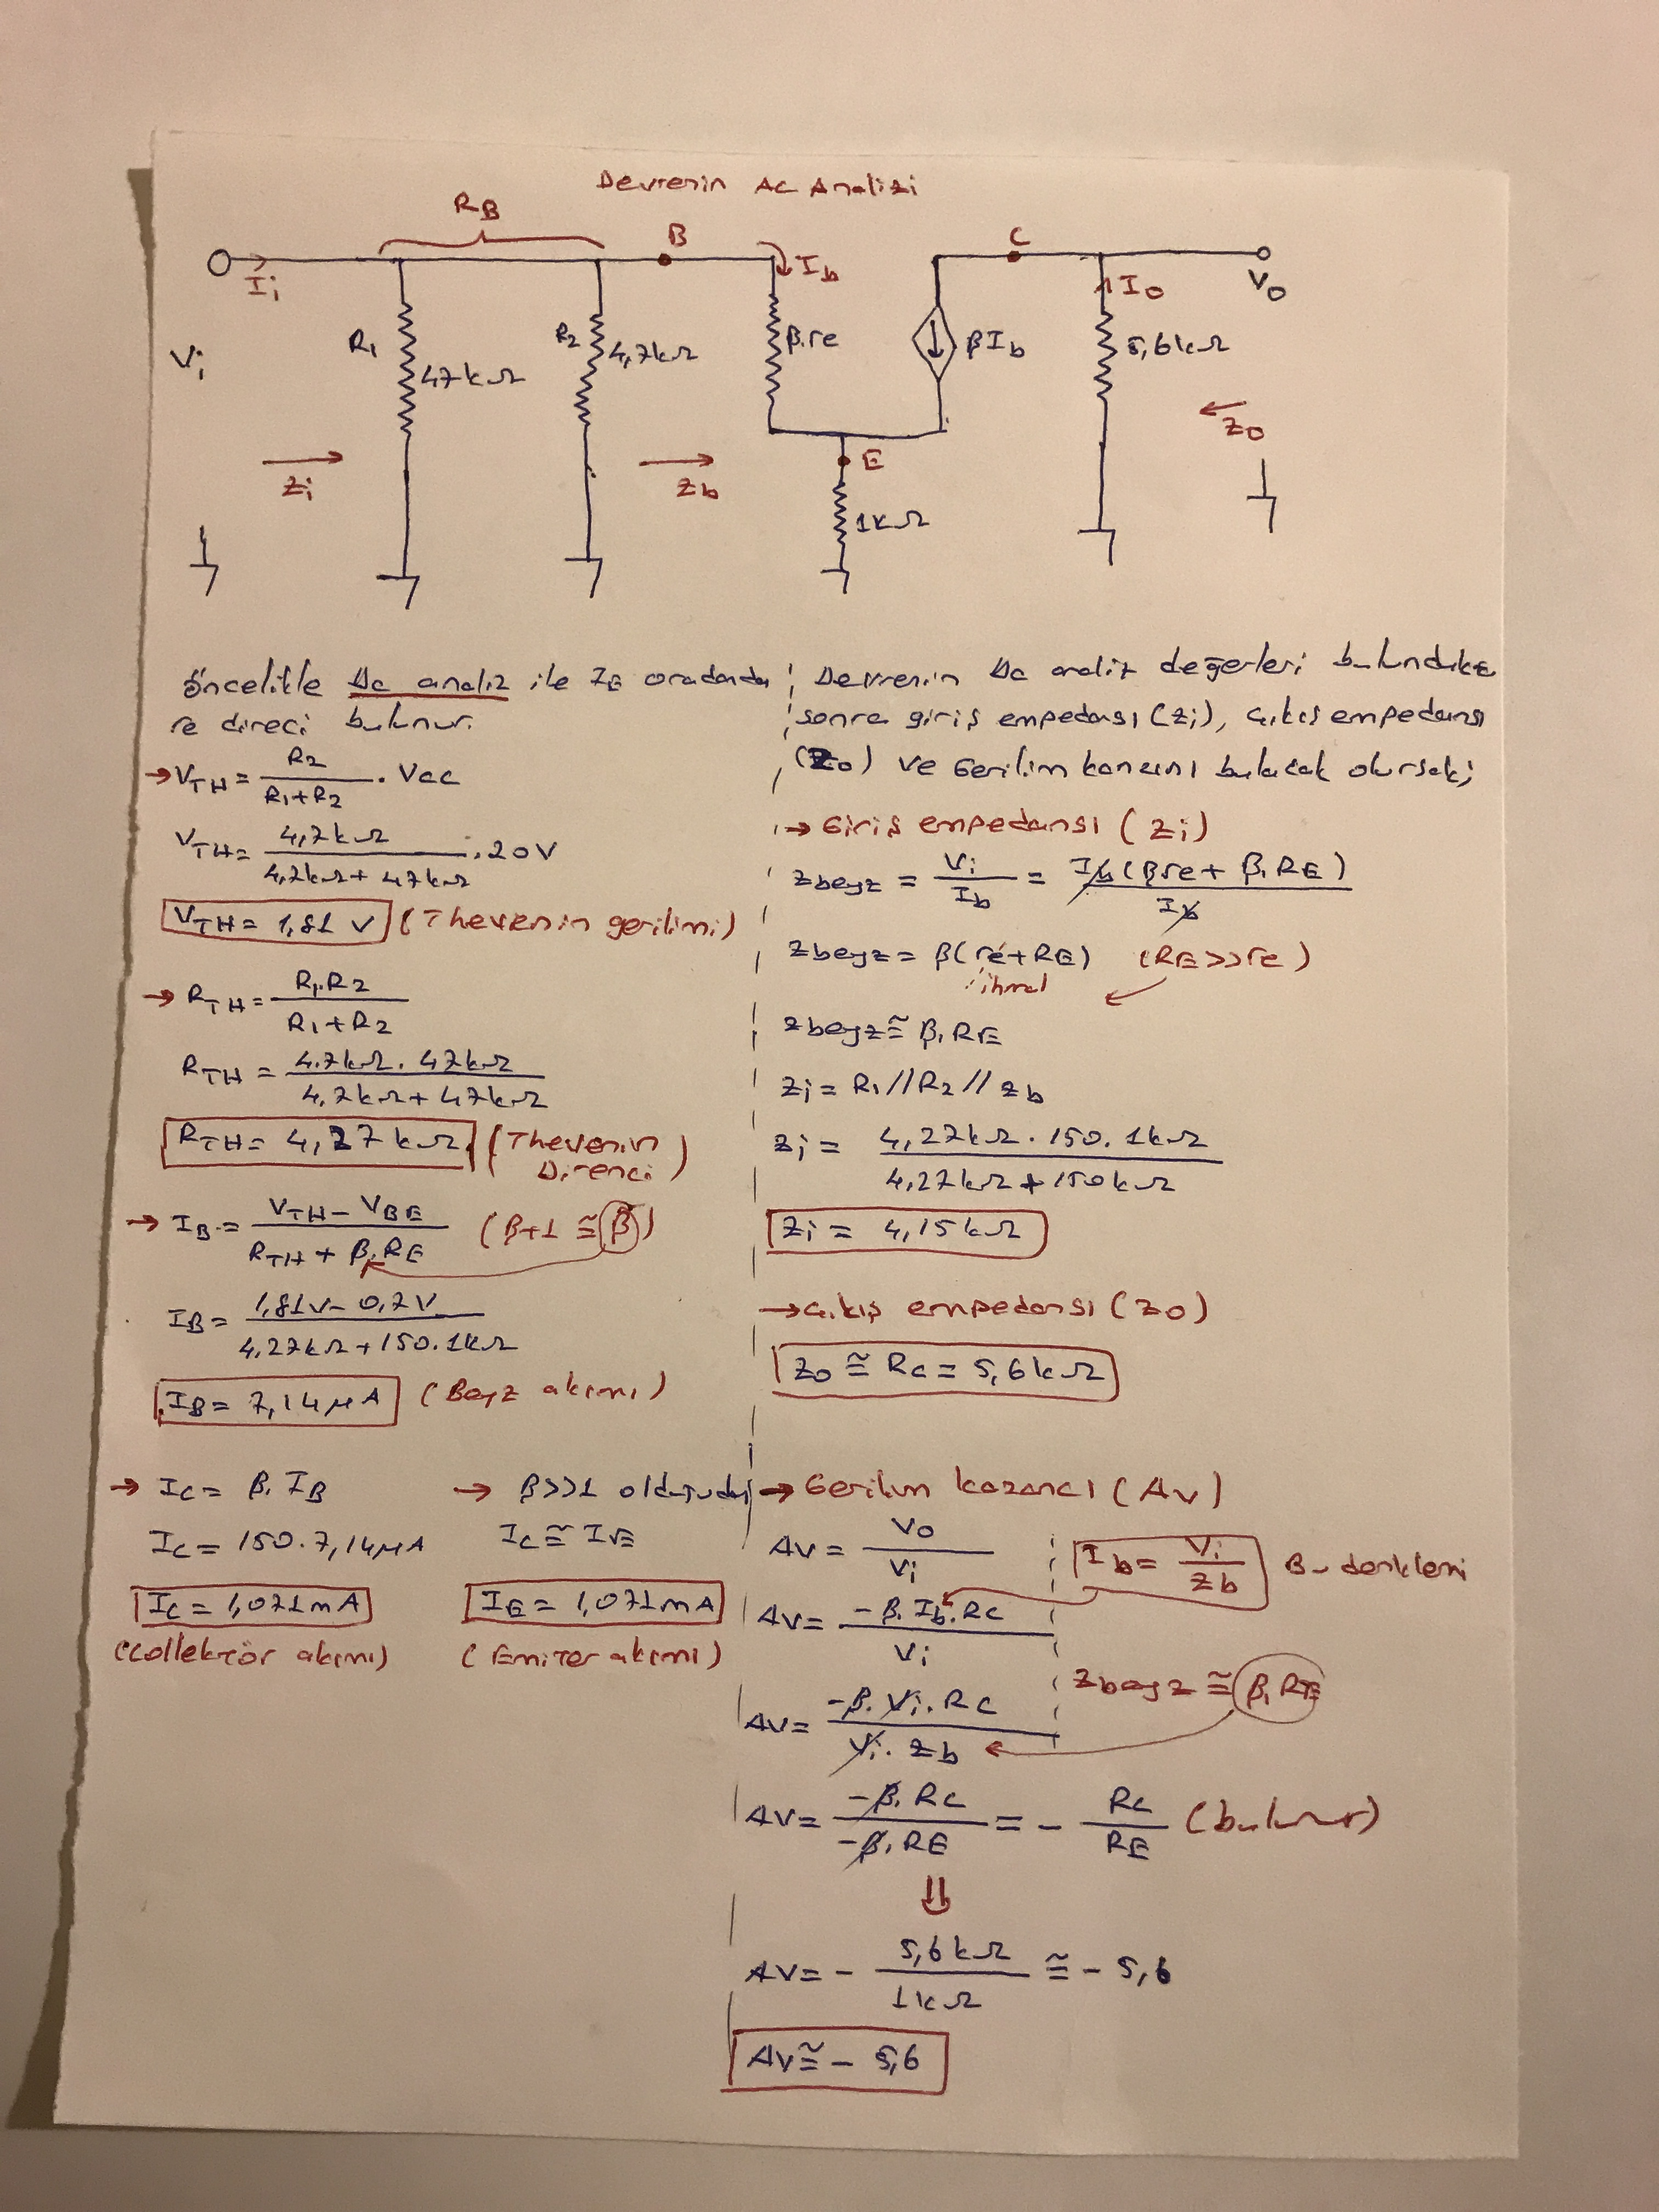 Devrenin AC Analizi
RB
B
C
Ii
Ib
Io
Vo
Vi
R1
47kΩ
R2
4,7kΩ
β.re
βIb
5,6kΩ
Zi
Zb
E
Zo
1kΩ
Öncelikle Dc analiz ile IE oradanda
re direci bulunur.
→ VTH = R2 / R1+R2 . Vcc
VTH = 4,7kΩ / 4,7kΩ + 47kΩ . 20V
VTH = 1,81 V (Thevenin gerilimi)
→ RTH = R1.R2 / R1+R2
RTH = 4.7kΩ . 47kΩ / 4,7kΩ + 47kΩ
RTH = 4,27kΩ (Thevenin Direnci)
→ IB = VTH - VBE / RTH + β.RE (β+1 ≅ β)
IB = 1,81V - 0,7V / 4,27kΩ + 150.1kΩ
IB = 7,14μA (Beyz akımı)
→ IC = β.IB
IC = 150.7,14μA
IC = 1,071mA
(Collektör akımı)
→ β>>1 olduğundan
IC ≅ IE
IE = 1,071mA
(Emiter akımı)
Devrenin Dc analiz değerleri bulunduktan
sonra giriş empedansı (Zi), çıkış empedansı
(Zo) ve Gerilim kazancını bulacak olursak;
→ Giriş empedansı (Zi)
Zbeyz = Vi / Ib = Ib(βre + β.RE) / Ib
Zbeyz = β(re+RE) (RE>>re)
ihmal
Zbeyz ≅ β.RE
Zi = R1//R2//Zb
Zi = 4,27kΩ . 150.1kΩ / 4,27kΩ + 150kΩ
Zi = 4,15kΩ
→ Çıkış empedansı (Zo)
Zo ≅ RC = 5,6kΩ
→ Gerilim kazancı (AV)
AV = Vo / Vi
Ib = Vi / Zb Bu denklemi
AV = -β.Ib.RC / Vi
Zbeyz ≅ β.RE
AV = -β.Vi.RC / Vi.Zb
AV = -β.RC / -β.RE = - RC / RE (bulunur)
⇓
AV = - 5,6kΩ / 1kΩ ≅ - 5,6
AV ≅ - 5,6